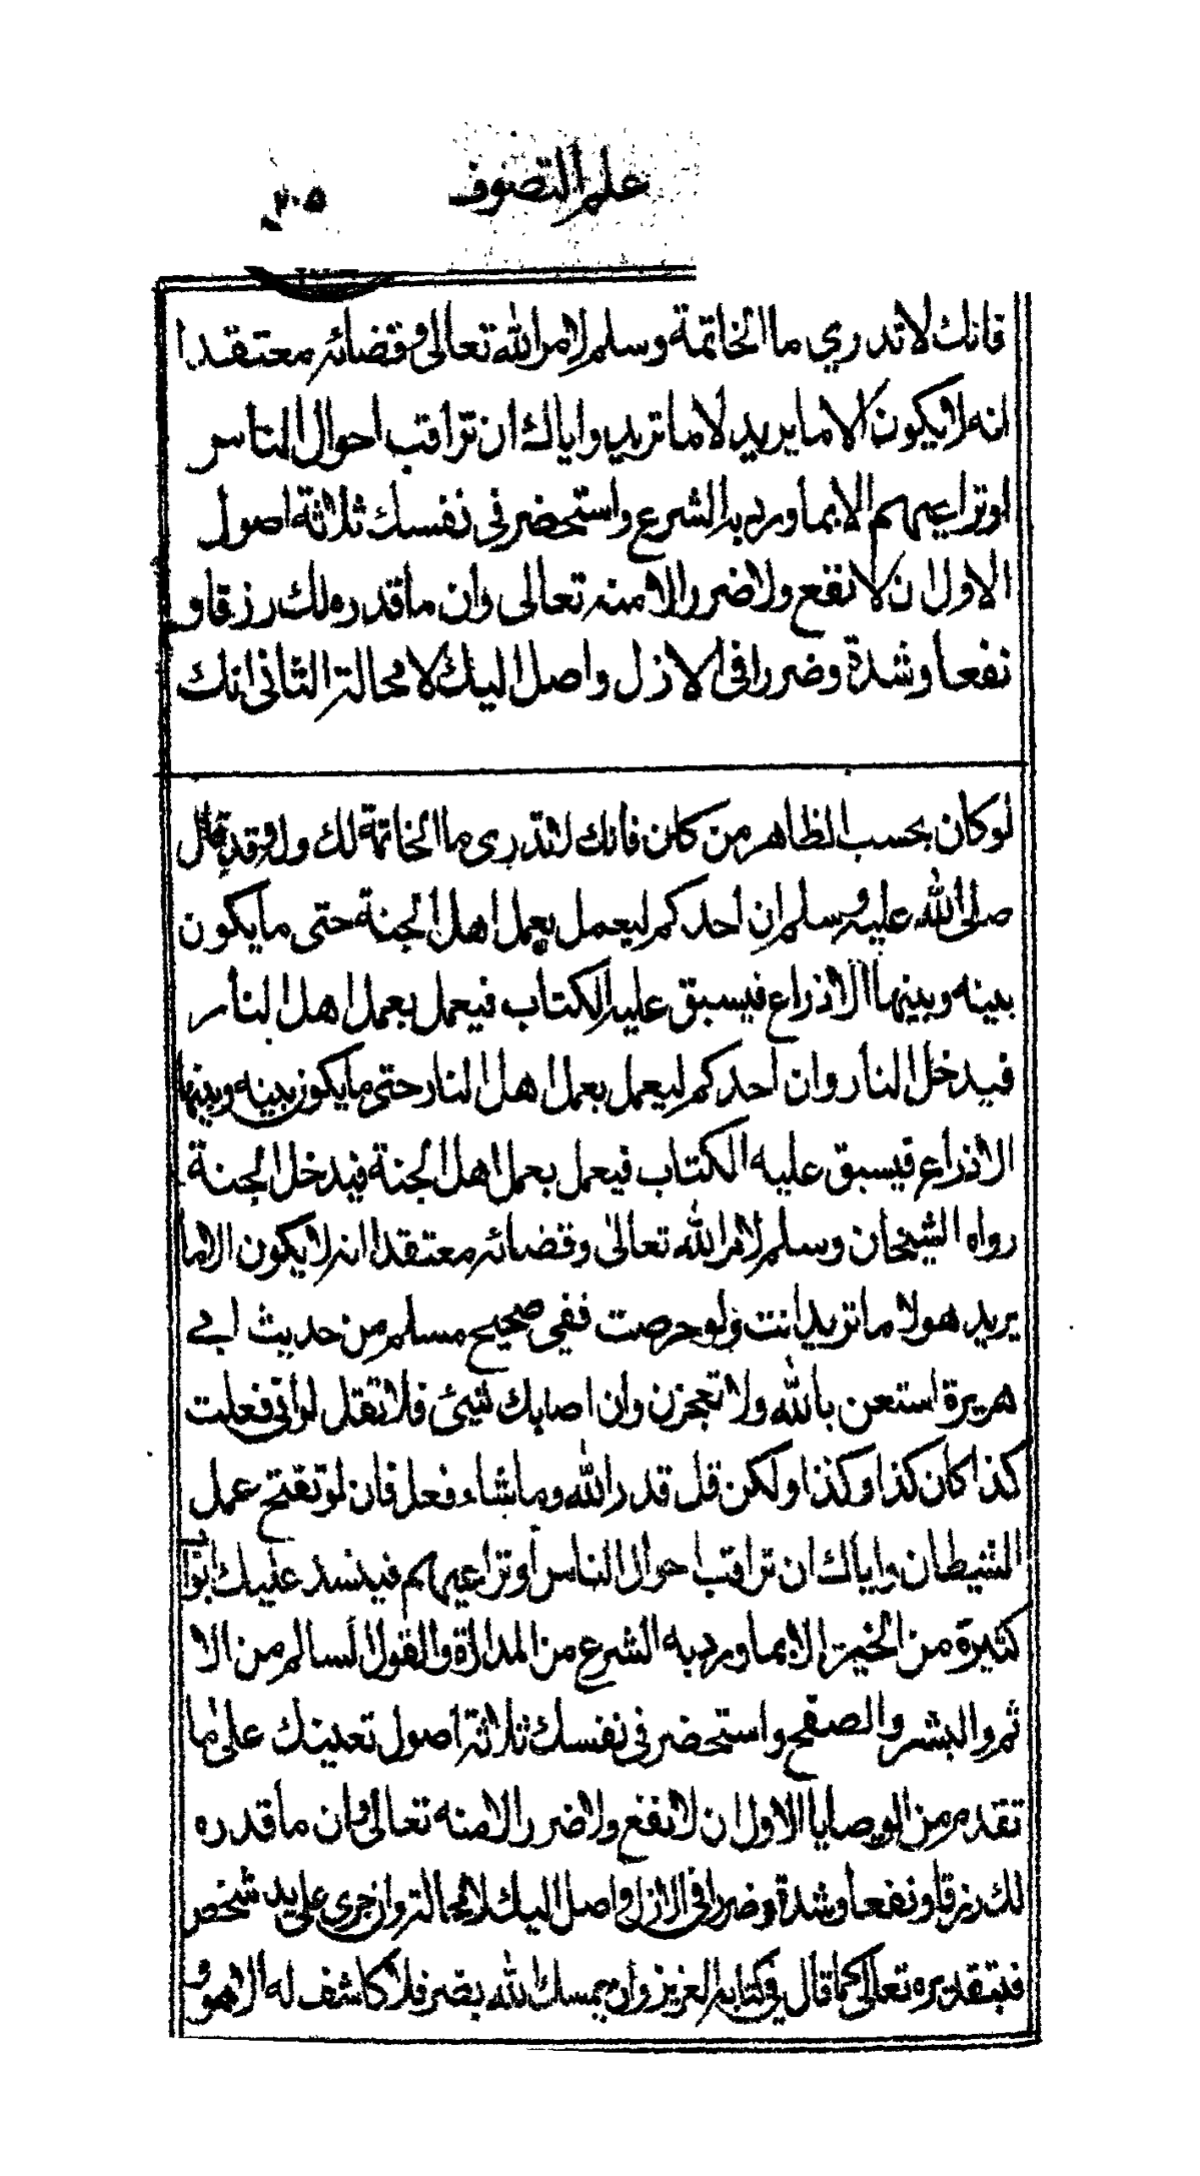 علم التصوف
٢٠٥
فانك لا تدري ما الخاتمة وسلم لامر الله تعالى وقضائه معتقدا
انه لا يكون الا ما يريد لا ما تريد واياك ان تراقب احوال الناس
او تراعيهم الا بما ورد به الشرع واستحضر في نفسك ثلاثة اصول
الاول ان لا نفع ولا ضرر الا منه تعالى وان ما قدره لك رزقا و
نفعا وشدة وضررا في الازل واصل اليك لا محالة الثاني انك
لو كان بحسب الظاهر من كان فانك لا تدرى ما الخاتمة لك وله وقد قال
صلى الله عليه وسلم ان احدكم ليعمل بعمل اهل الجنة حتى ما يكون
بينه وبينها الا ذراع فيسبق عليه الكتاب فيعمل بعمل اهل النار
فيدخل النار وان احدكم ليعمل بعمل اهل النار حتى ما يكون بينه وبينها
الا ذراع فيسبق عليه الكتاب فيعمل بعمل اهل الجنة فيدخل الجنة
رواه الشيخان وسلم لامر الله تعالى وقضائه معتقدا انه لا يكون الا ما
يريد هو لا ما تريد انت ولو حرصت ففي صحيح مسلم من حديث ابي
هريرة استعن بالله ولا تعجزن وان اصابك شيئ فلا تقل لو اني فعلت
كذا كان كذا وكذا ولكن قل قدر الله وما شاء فعل فان لو تفتح عمل
الشيطان واياك ان تراقب احوال الناس او تراعيهم فينسد عليك ابواب
كثيرة من الخير الا بما ورد به الشرع من المداراة والقول السالم من الا
ثم والبشر والصفح واستحضر في نفسك ثلاثة اصول تعينك على ما
تقدم من الوصايا الاول ان لا نفع ولا ضرر الا منه تعالى وان ما قدره
لك رزقا ونفعا وشدة وضررا في الازل واصل اليك لا محالة وان جرى على يد شخص
فبتقديره تعالى كما قال في كتابه العزيز وان يمسسك الله بضر فلا كاشف له الا هو و